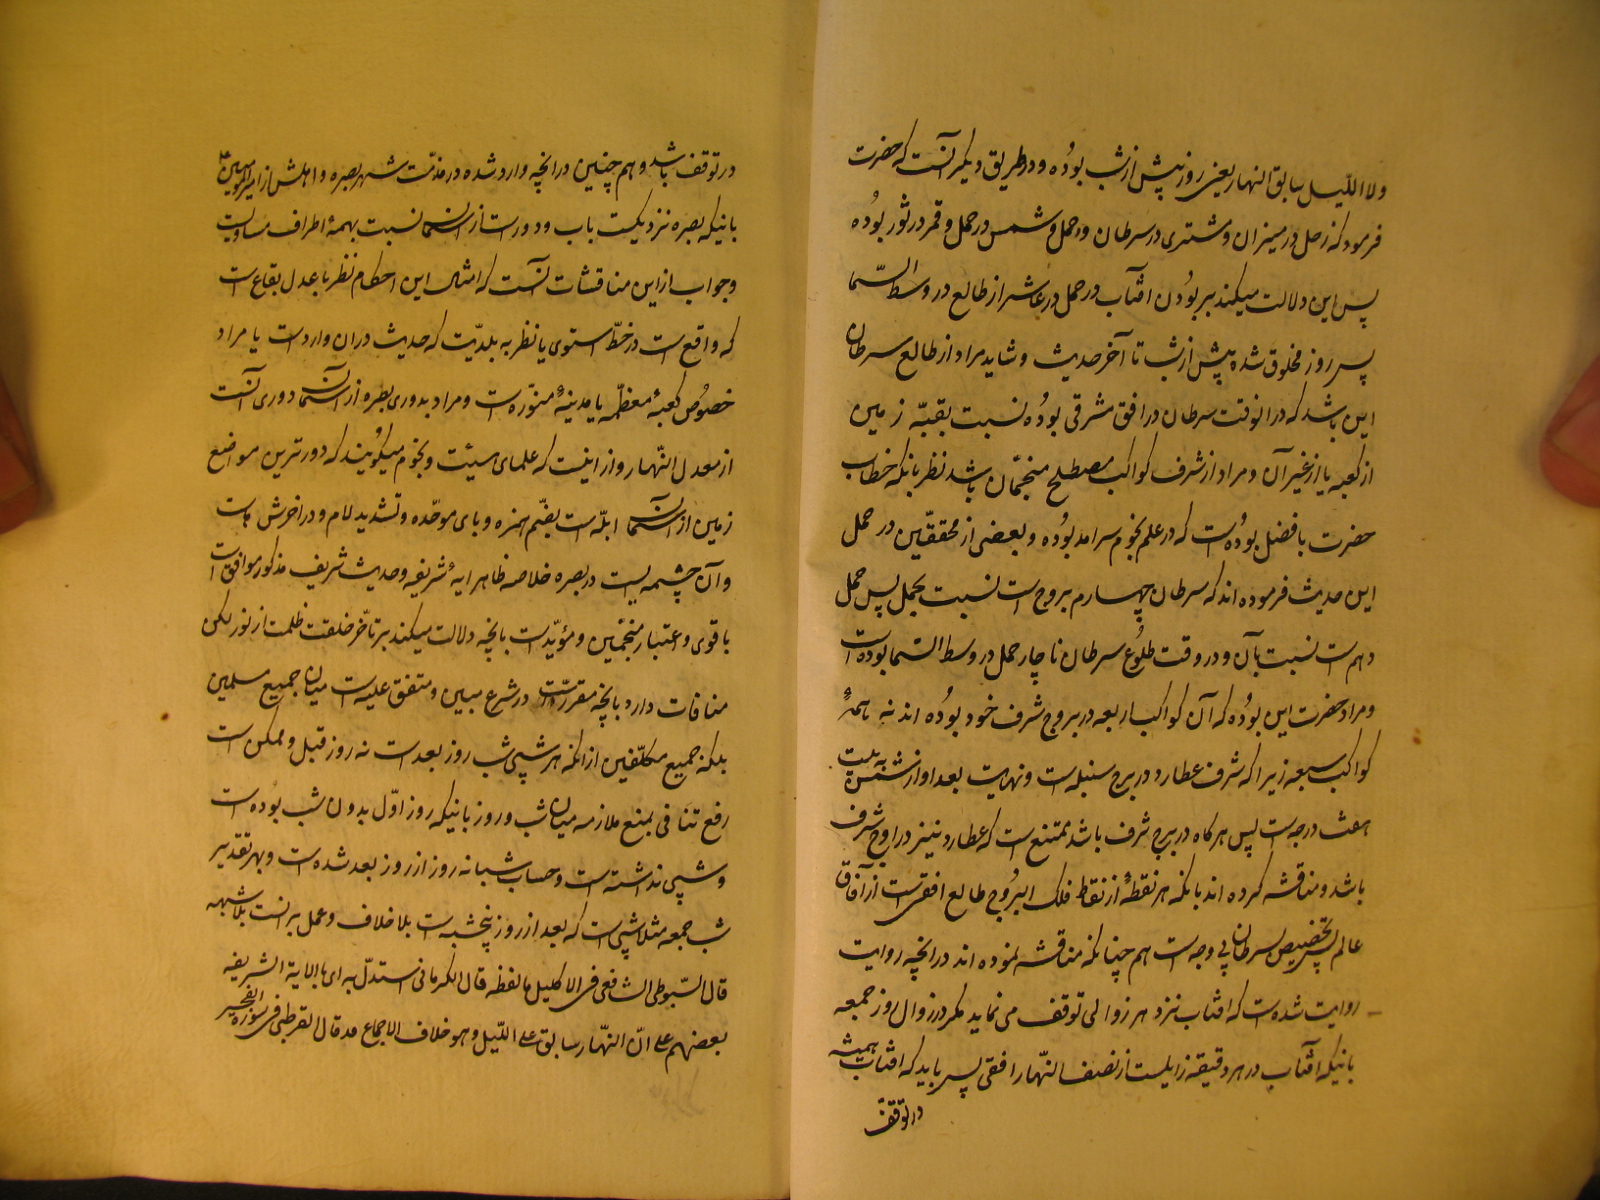 ولا اللّیل سابق النهار یعنی روز پیش از شب بوده و در طریق دیگر آنست که حضرت
فرمود که زحل در میزان و مشتری در سرطان و حمل و شمس در حمل و قمر در ثور بوده
پس این دلالت میکند بر بودن افتاب در حمل در عاشر از طالع در وسط السّما
پس روز مخلوق شده پیش از شب تا آخر حدیث و شاید مراد از طالع سرطان
این باشد که در انوقت سرطان در افق مشرقی بوده نسبت بقبّه زمین
از کعبه یا از غیر آن و مراد از شرف کواکب مصطلح منجّمان باشد نظر بانکه خطاب
حضرت با فضل بوده است که در علم نجوم سرامد بوده و بعضی از محققّین در حمل
این حدیث فرموده اند که سرطان چهارم بروج است نسبت بحمل پس حمل
دهم است نسبت بآن و در وقت طلوع سرطان ناچار حمل در وسط السّما بوده است
و مراد حضرت این بوده که آن کواکب اربعه در بروج شرف خود بوده اند نه همهٔ
کواکب سبعه زیرا که شرف عطارد در برج سنبله است و نهایت بعد او از شمس بیست
هفت درجه است پس هرکاه در برج شرف باشد ممتنع است که عطارد نیز در اوج شرف
باشد و مناقشه کرده اند بانکه هر نقطهٔ از نقاط فلک البروج طالع افقی است از آفاق
عالم پس تخصیص سرطان بی وجه است هم چنانکه مناقشه نموده اند در انچه روایت
روایت شده است که افتاب نزد هر زوالی توقف می نماید مگر در زوال روز جمعه
بانیکه آفتاب در هر دقیقه زایلست از نصف النّهار افقی پس باید که افتاب همیشه
در توقف
در توقف باشد و هم چنین در انچه وارد شده در مذمّت شهر بصره و اهلش از امیر المومنین ع
بانیکه بصره نزدیکست باب و دور است از آسمان نسبت بهمهٔ اطراف مساویست
و جواب از این مناقشات آنست که امثال این احکام نظر باعدل بقاع است
که واقع است در خطّ استوی یا نظر به بلدیّت که حدیث دران وارد است یا مراد
خصوص کعبهٔ معظّمه یا مدینهٔ منوّره است و مراد بدوری بصره از آسمان دوری آنست
از معدل النّهار و از اینست که علمای هیئت و نجوم میگویند که دورترین مواضع
زمین از آسمان ابلّه است بضّم همزه و بای موحّده و تشدید لام و در اخرش هاست
و آن چشمه ایست در بصره خلاصه ظاهر ایهٔ شریفه و حدیث شریف مذکور موافق است
با قوی و اعتبار منجّمین و مؤیّد است بانچه دلالت میکند بر تاخّر خلقت ظلمت از نور لکن
منافات دارد بانچه مقرر است در شرع مبین و متفق علیه است میان جمیع مسلمین
بلکه جمیع مکلّفین از انکه هر شبی شب روز بعد است نه روز قبل و ممکن است
رفع تنافی بمنع ملازمه میان شب و روز بانیکه روز اوّل بدون شب بوده است
و شبی نداشته است و حساب شبانه روز از روز بعد شده است و بهر تقدیر
شب جمعه مثلا شبی است که بعد از روز پنجشبه است بلا خلاف و عمل بر انست بلا شبهه
قال السّیوطی الشافعی فی الاکلیل ما لفظه قال الکرمانی استدلّ به ای بالایة الشریفه
بعضهم علی انّ النّهار سابق علی اللّیل و هو خلاف الاجماع قد قال القرطبی فی سورة الفجر